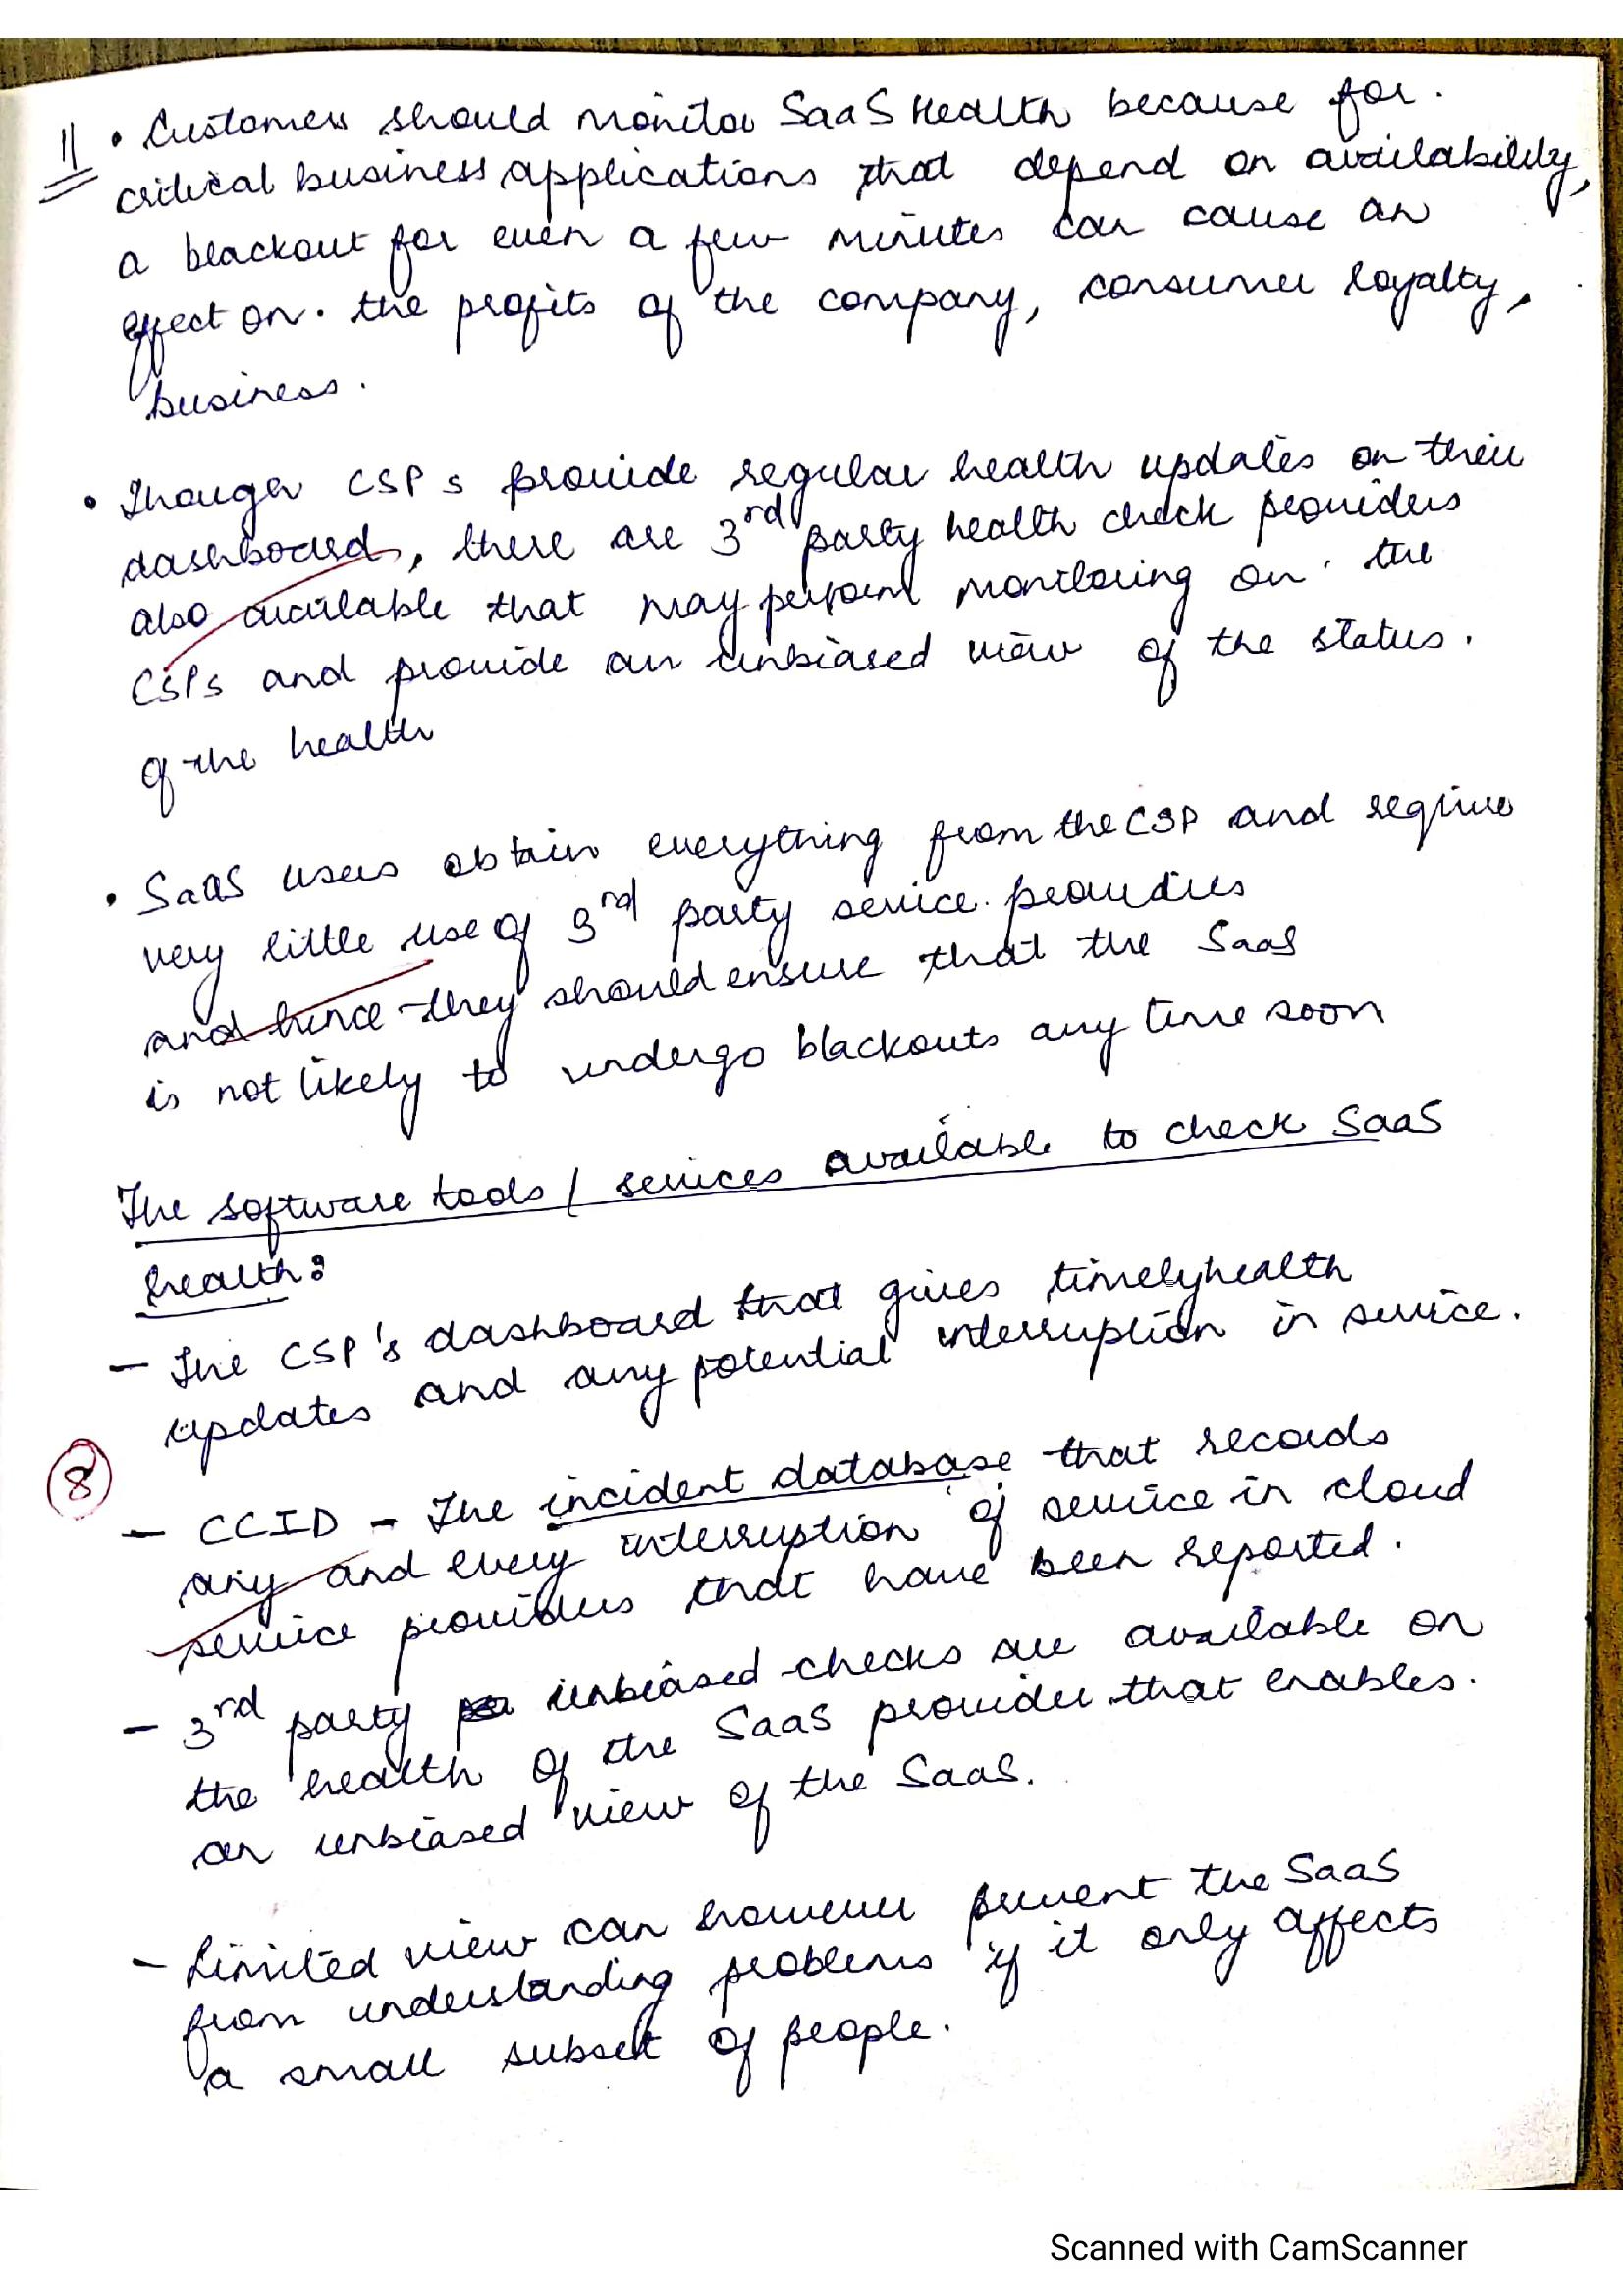 11 • Customers should monitor SaaS Health because for.
critical business applications that depend on availability,
a blackout for even a few minutes can cause an
effect on. the profits of the company, consumer loyalty,
business.
• Though CSPs provide regular health updates on their
dashboard, there are 3rd party health check providers
also available that may perform monitoring on the
CSPs and provide an unbiased view of the status.
of the health
• SaaS users obtain everything from the CSP and require
very little use of 3rd party service providers
and hence they should ensure that the SaaS
is not likely to undergo blackouts any time soon
The software tools / services available to check SaaS
health:
– The CSP's dashboard that gives timely health
updates and any potential interruption in service.
8
– CCID – The incident database that records
any and every interruption of service in cloud
service providers that have been reported.
– 3rd party unbiased checks are available on
the health of the SaaS provider that enables.
an unbiased view of the SaaS.
– Limited view can however prevent the SaaS
from understanding problems if it only affects
a small subset of people.
Scanned with CamScanner